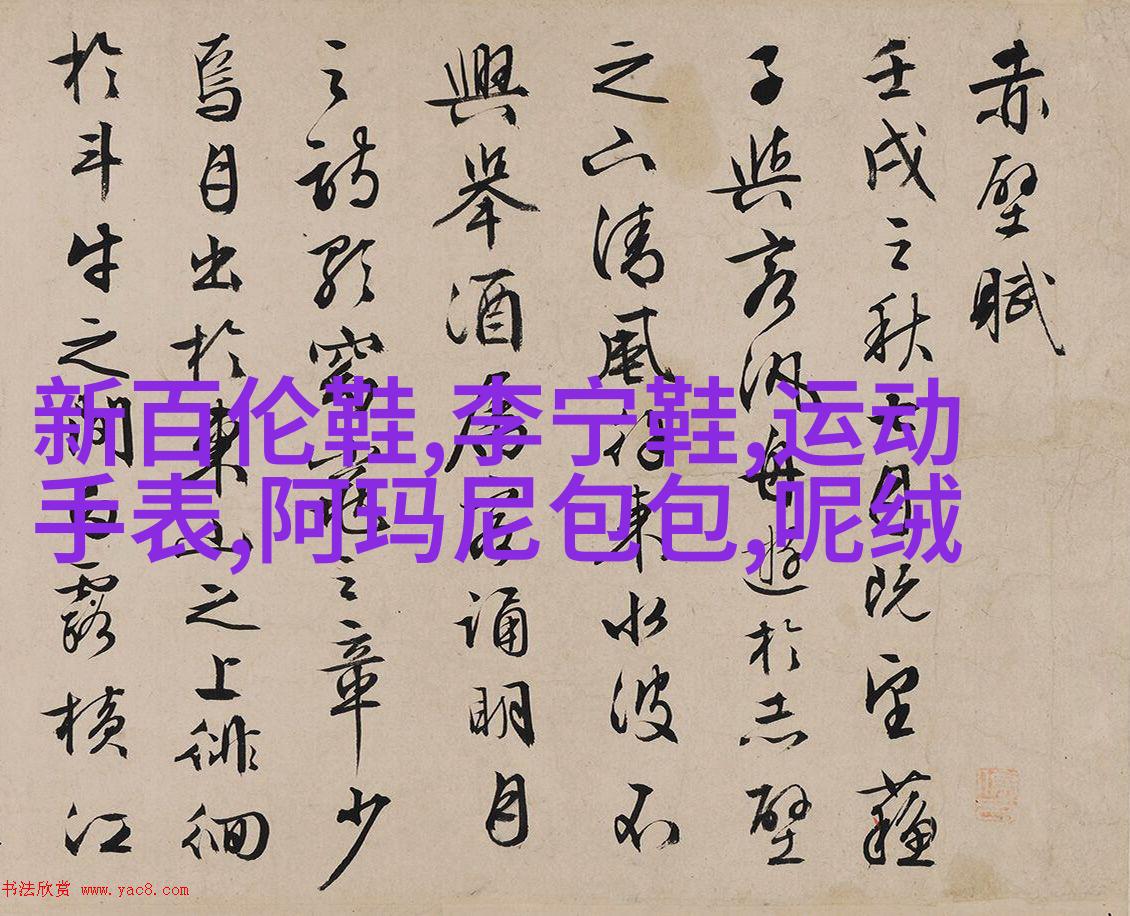 赤壁賦
壬戌之秋七月既望蘓
子與客汎舟遊於赤壁
之下清風徐來水波不
興舉酒屬客誦明月
之詩歌窈窕之章少
焉月出於東山之上徘徊
於斗牛之間白露橫江
新百伦鞋,李宁鞋,运动
手表,阿玛尼包包,呢绒
书法欣赏 www.yac8.com